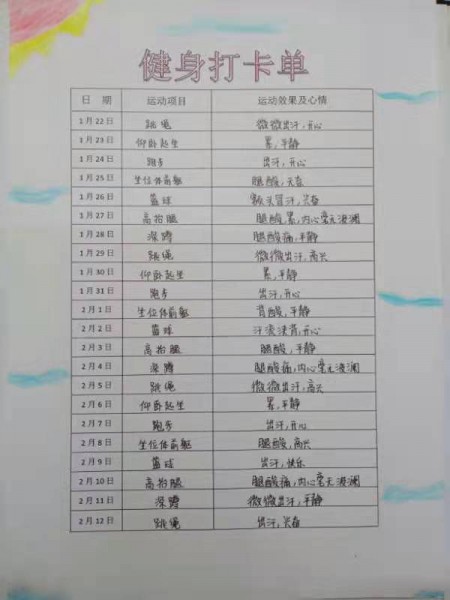 健身打卡单
日 期 运动项目 运动效果及心情
1月22日 跳绳 微微出汗,开心
1月23日 仰卧起坐 累,平静
1月24日 跑步 出汗,开心
1月25日 坐位体前屈 腿酸,
1月26日 篮球 额头冒汗,兴奋
1月27日 高抬腿 腿酸,累,内心毫无波澜
1月28日 深蹲 腿酸痛,平静
1月29日 跳绳 微微出汗,高兴
1月30日 仰卧起坐 累,平静
1月31日 跑步 出汗,开心
2月1日 坐位体前屈 背酸,平静
2月2日 篮球 汗流浃背,开心
2月3日 高抬腿 腿酸,平静
2月4日 深蹲 腿酸痛,内心毫无波澜
2月5日 跳绳 微微出汗,高兴
2月6日 仰卧起坐 累,平静
2月7日 跑步 出汗,开心
2月8日 坐位体前屈 腿酸,高兴
2月9日 篮球 出汗,快乐
2月10日 高抬腿 腿酸痛,内心毫无波澜
2月11日 深蹲 微微出汗,平静
2月12日 跳绳 出汗,兴奋